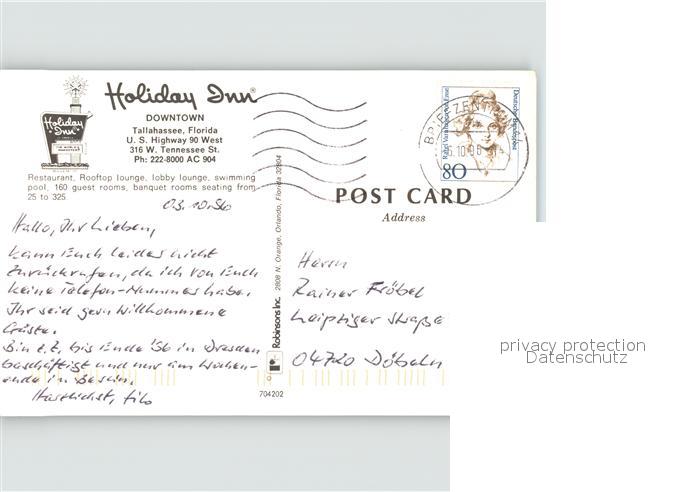 Holiday Inn®
DOWNTOWN
Tallahassee, Florida
U. S. Highway 90 West
316 W. Tennessee St.
Ph: 222-8000 AC 904
Holiday Inn
Restaurant, Rooftop lounge, lobby lounge, swimming
pool, 160 guest rooms, banquet rooms seating from
25 to 325.
03.10.96
Hallo, Ihr Lieben,
kann Euch leider nicht
zurückrufen, da ich von Euch
keine Telefon-Nummer habe.
Ihr seid gern willkommene
Gäste.
Bin z.Z. bis Ende '96 in Dresden
beschäftigt und nur am Wochen-
ende in
Herzlichst,
Robinsons Inc. 2808 N. Orange, Orlando, Florida 32804
704202
Deutsche Bundespost
Rahel Varnhagen von Ense
80
BRIEFZENTRUM
POST CARD
Address
Herrn
Rainer Fröbel
Leipziger Straße
04720 Döbeln
privacy protection
Datenschutz